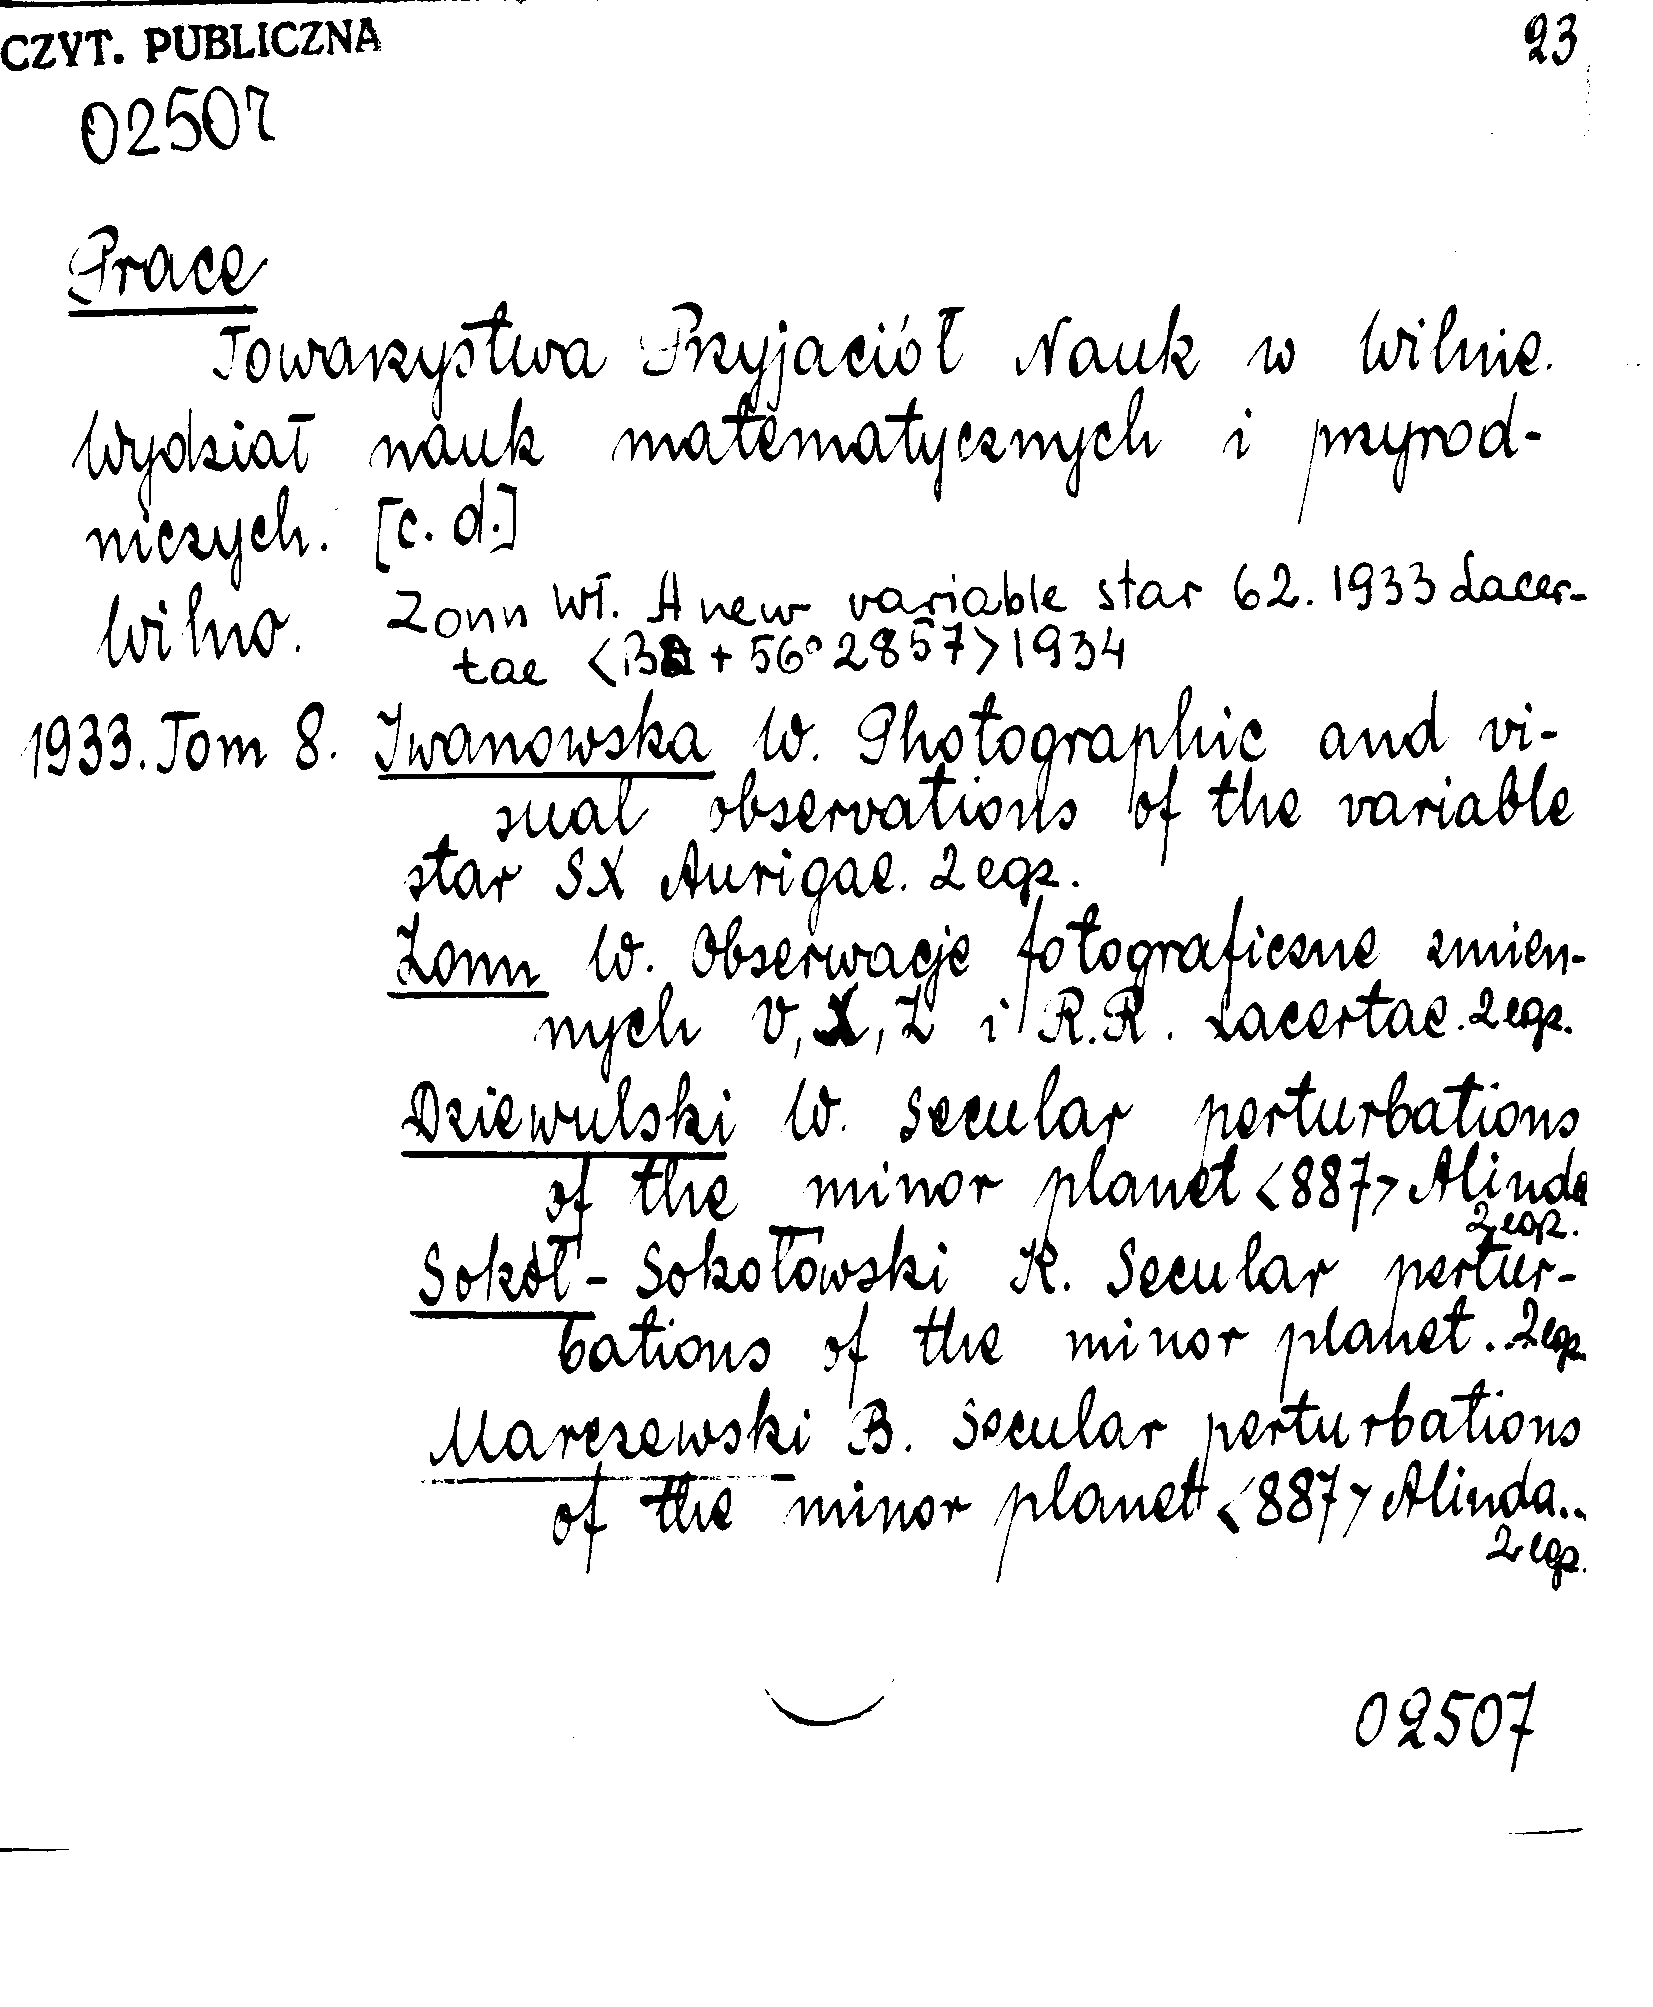 CZYT. PUBLICZNA
23
02507
Prace
Towarzystwa Przyjaciół Nauk w Wilnie.
Wydział nauk matematycznych i przyrod-
niczych. [c. d.]
Wilno. Zonn Wł. A new variable star 62. 1933 Lacer-
tae <BD + 56° 2857> 1934
1933. Tom 8. Iwanowska W. Photographic and vi-
sual observations of the variable
star SX Aurigae. 2 egz.
Zonn W. Obserwacje fotograficzne zmien-
nych V, X, Z i R.R. Lacertae. 2 egz.
Dziewulski W. Secular perturbations
of the minor planet <887> Alinda
2 egz.
Sokół - Sokołowski K. Secular pertur-
bations of the minor planet. 2 egz.
Marczewski B. Secular perturbations
of the minor planet <887> Alinda..
2 egz.
02507